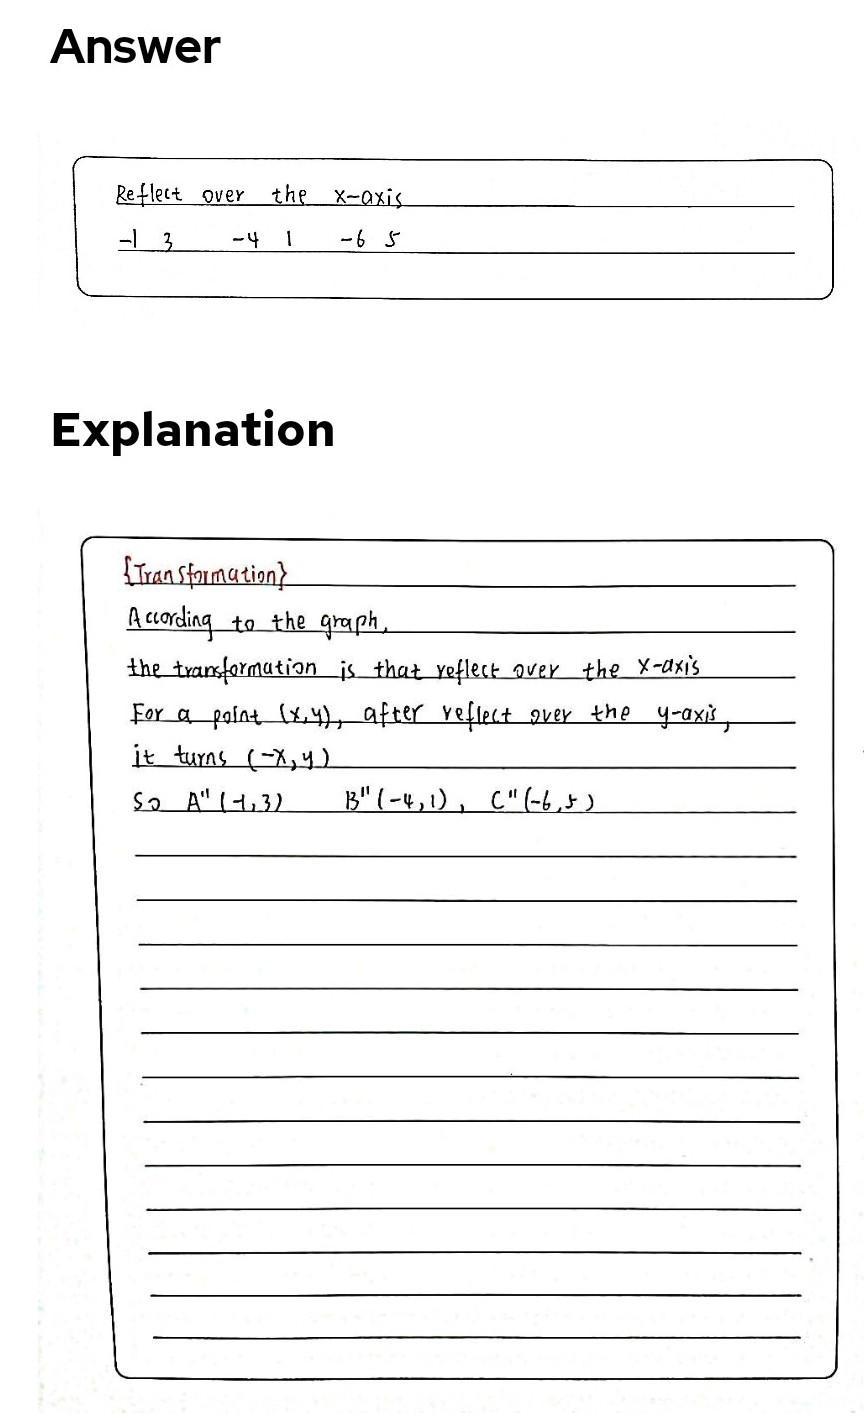 Answer
Reflect over the x-axis
-1 3 -4 1 -6 5
Explanation
{Transformation}
According to the graph,
the transformation is that reflect over the x-axis
For a point (x,y), after reflect over the y-axis,
it turns (-x,y)
So A"(-1,3) B"(-4,1), C"(-6,5)